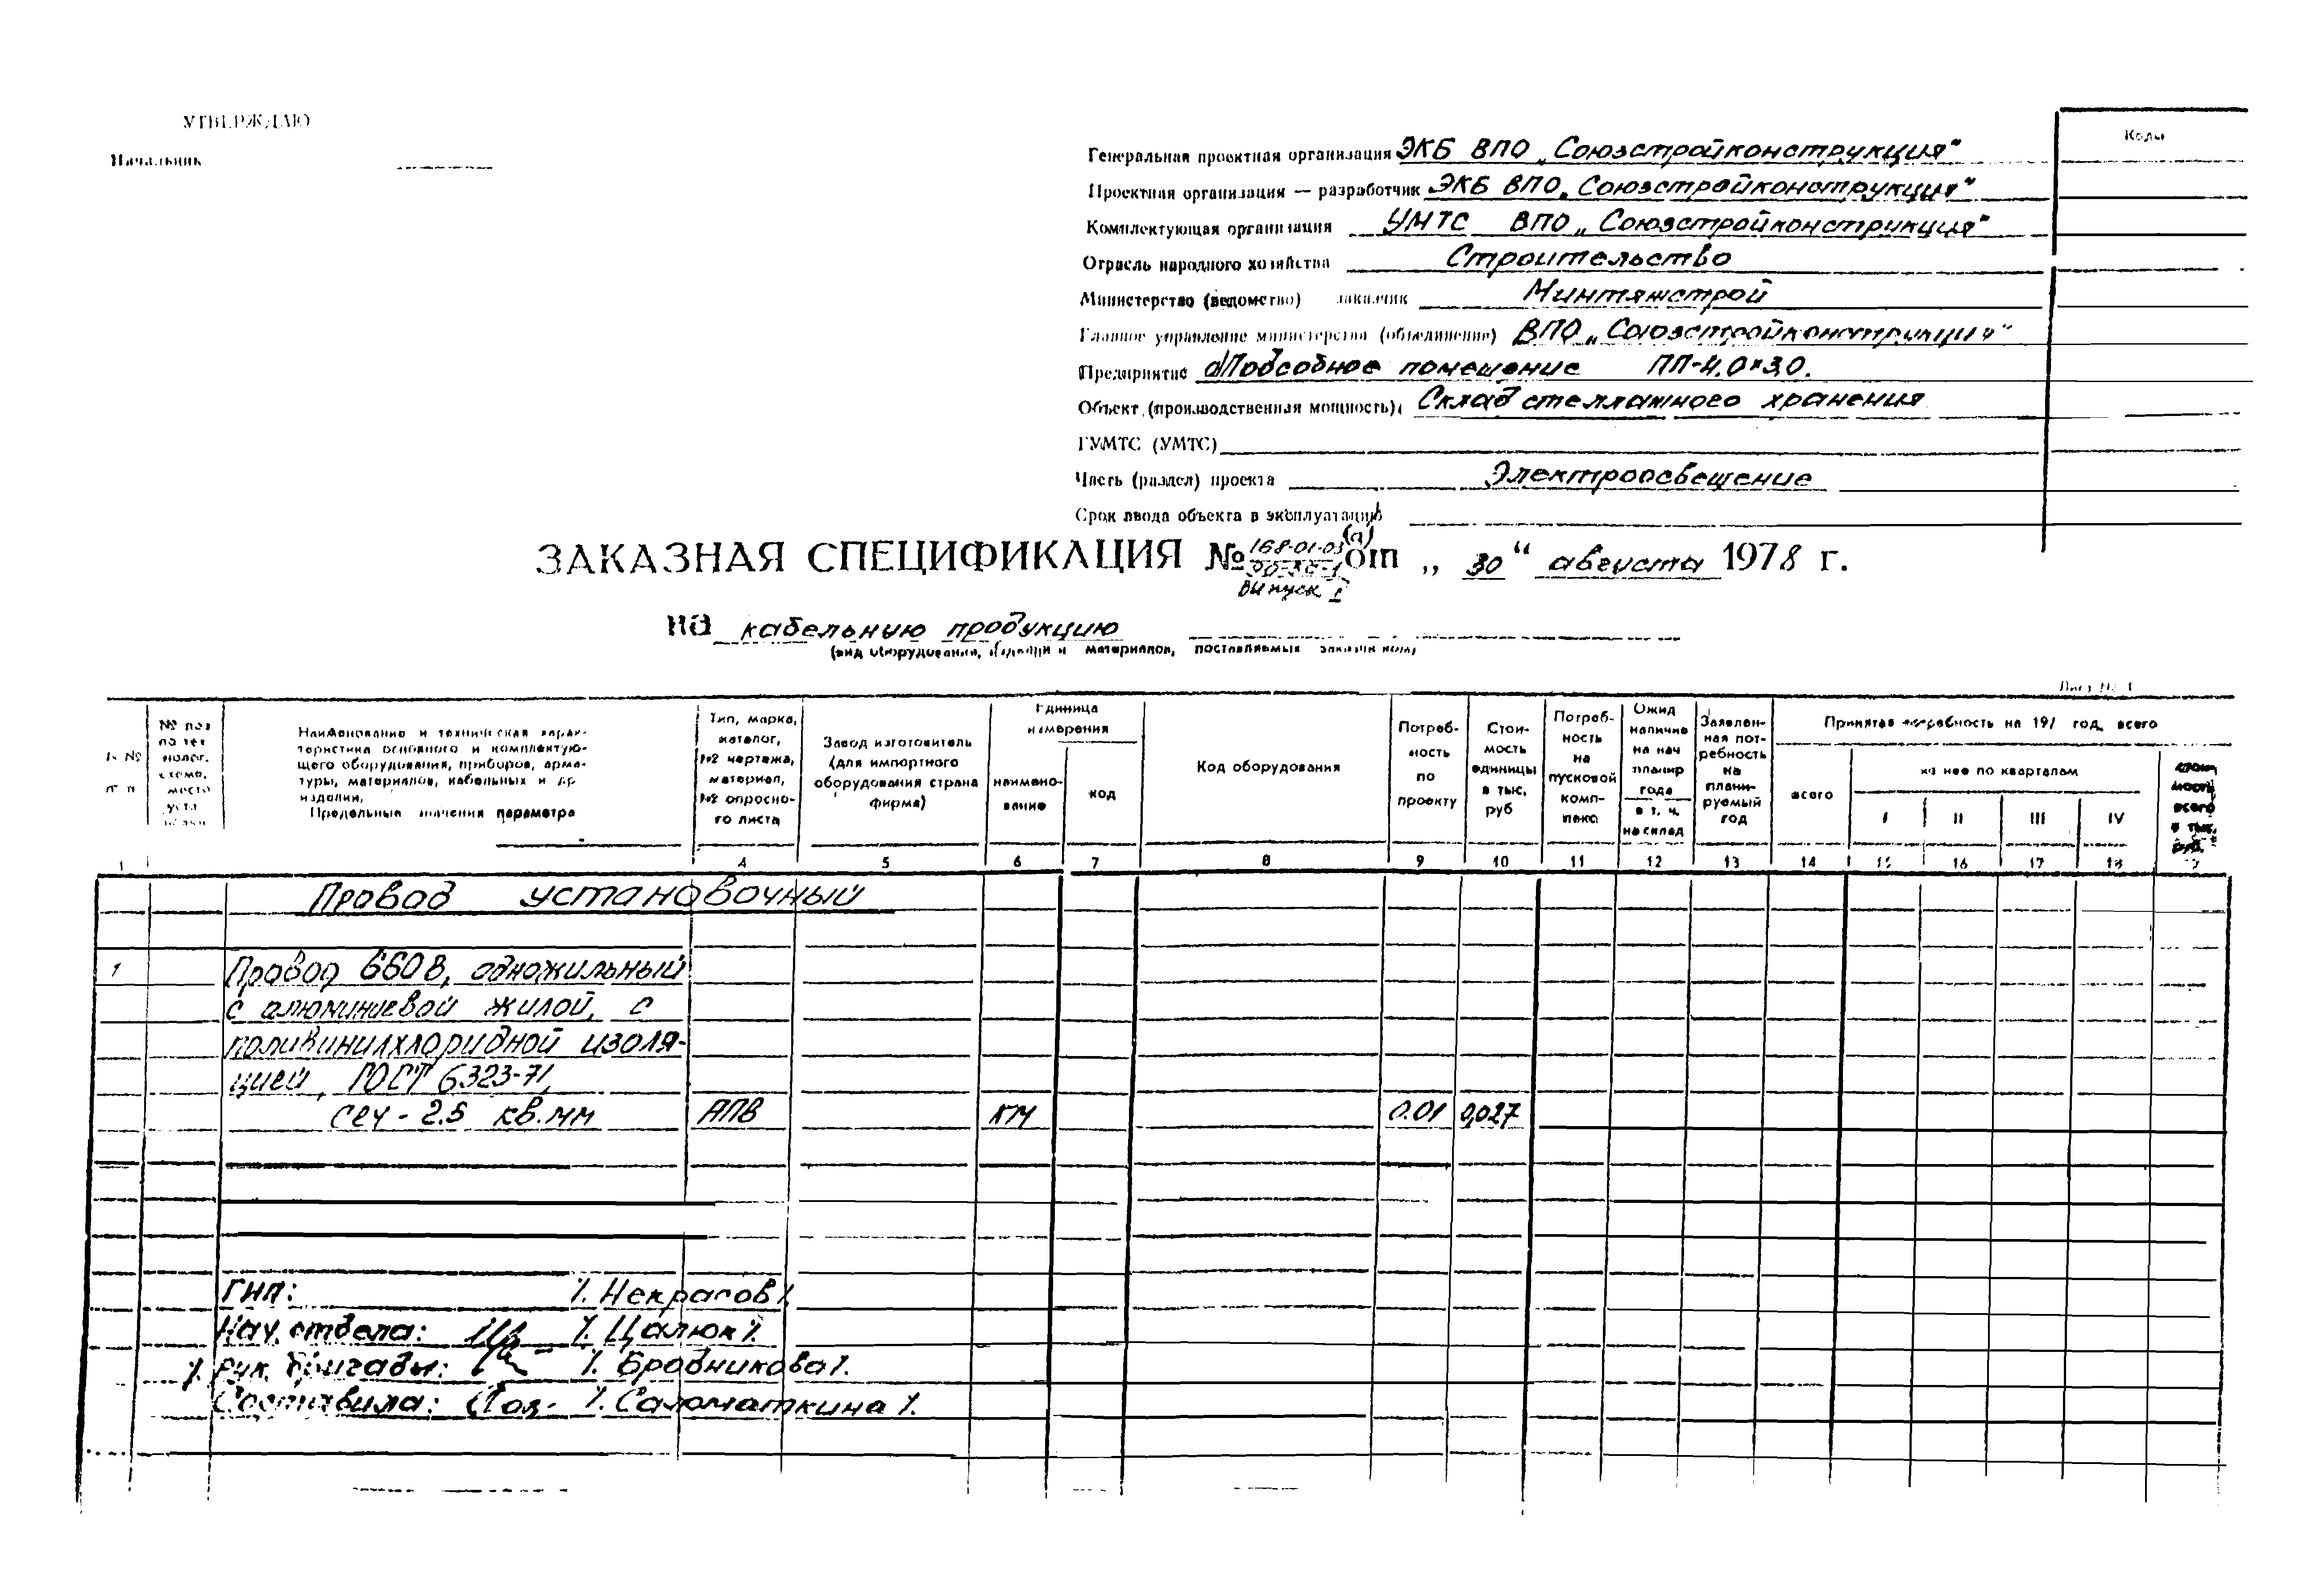 УТВЕРЖДАЮ
Начальник
Коды
Генеральная проектная организация ЭКБ ВПО „Союзстройконструкция"
Проектная организация — разработчик ЭКБ ВПО „Союзстройконструкция"
Комплектующая организация УМТС ВПО „Союзстройконструкция"
Отрасль народного хозяйства Строительство
Министерство (ведомство) заказчик Минтяжстрой
Главное управление министерства (объединение) ВПО „Союзстройконструкция"
Предприятие Подсобное помещение ПП-4.0×3.0.
Объект (производственная мощность) Склад стеллажного хранения
ГУМТС (УМТС)
Часть (раздел) проекта Электроосвещение
Срок ввода объекта в эксплуатацию
ЗАКАЗНАЯ СПЕЦИФИКАЦИЯ № 168-01-03 (а) от „ 30 “ августа 1978 г.
Выпуск I
на кабельную продукцию
(вид оборудования, изделий и материалов, поставляемых заказчиком)
Лист № 1
№ № п п
№ поз по тех нолог. схеме, место уста новки
Наименование и техническая харак-
теристика основного и комплектую-
щего оборудования, приборов, арма-
туры, материалов, кабельных и др
изделий.
Предельные значения параметра
Тип, марка, каталог, № чертежа, материал, № опросно-го листа
Завод изготовитель (для импортного оборудования страна фирма)
Единица измерения
наимено-вание
код
Код оборудования
Потреб-ность по проекту
Стои-мость единицы в тыс. руб
Потреб-ность на пусковой комп-лекс
Ожид наличие на нач планир года в т. ч. на склад
Заявлен-ная пот-ребность на плани-руемый год
Принятая потребность на 197 год, всего
всего
из нее по кварталам
I II III IV
стои мость всего в тыс. руб.
1 4 5 6 7 8 9 10 11 12 13 14 15 16 17 18
Провод установочный
1 Провод 660 В, одножильный
с алюминиевой жилой, с
поливинилхлоридной изоля-
цией, ГОСТ 6323-71,
сеч - 2.5 кв.мм АПВ км 0.01 0,027
ГИП: /. Некрасов /.
Нач. отдела: /. Цалюк /.
рук. бригады: /. Бровникова /.
Составила: /. Саломаткина /.